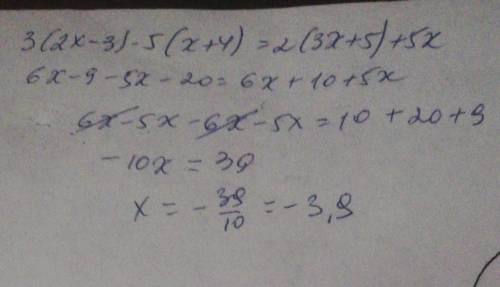 3(2x-3)-5(x+4)=2(3x+5)+5x
6x-9-5x-20=6x+10+5x
6x-5x-6x-5x=10+20+9
-10x=39
x=-39/10=-3,9